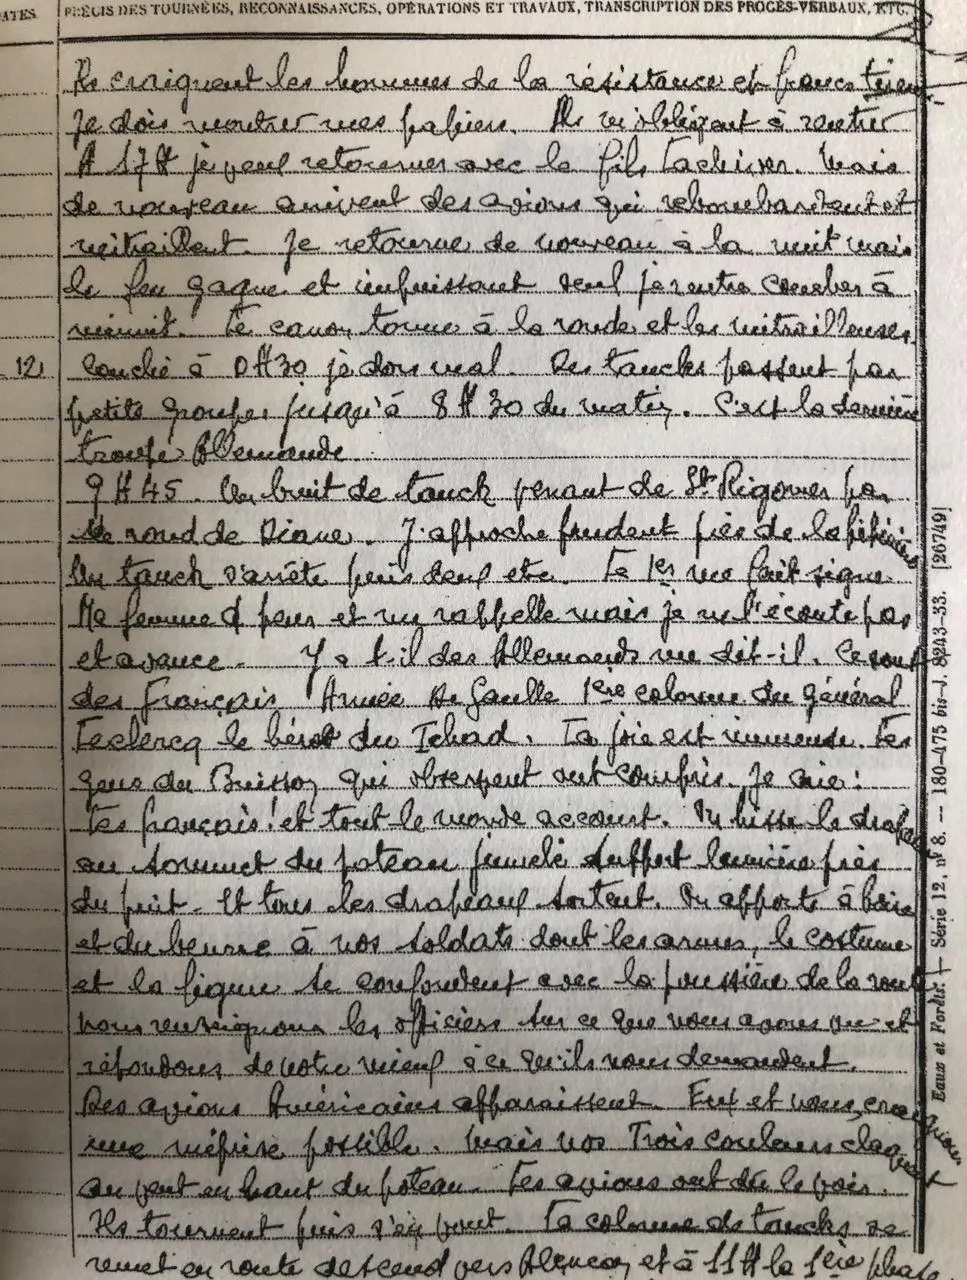 DATES PRÉCIS DES TOURNÉES, RECONNAISSANCES, OPÉRATIONS ET TRAVAUX, TRANSCRIPTION DES PROCÈS-VERBAUX, ETC.
Ils craignent les hommes de la résistance et francs tireurs
Je dois montrer mes papiers. Ils m'obligent à rentrer
A 17H je peux retourner avec le fils Mais
de nouveau arrivent des avions qui rebombardent et
mitraillent. Je retourne de nouveau à la nuit mais
le feu gagne et impuissant seul je rentre coucher à
minuit. Le canon tonne à la ronde et les mitrailleuses.
12 Couché à 0H30 je dors mal. Des tancks passent par
petits groupes jusqu'à 8H30 du matin. C'est la dernière
troupe Allemande
9H45. Un bruit de tanck venant de St Rigomer par
le rond de Diane. J'approche prudent près de la pépinière
Un tanck s'arrête puis deux etc. Le 1er me fait signe
Ma femme a peur et me rappelle mais je ne l'écoute pas
et avance. Y a t-il des Allemands me dit-il. Ce sont
des Français Armée De Gaulle 1ère colonne du général
Leclercq le héros du Tchad. La joie est immense. Les
gens du Buisson qui observent ont compris. Je crie:
Les français! et tout le monde accourt. On hisse le drapeau
au sommet du poteau jumelé support lumière près
du puit. Et tous les drapeaux sortent. On apporte à boire
et du beurre à nos soldats dont les armes, le costume
et la figure se confondent avec la poussière de la route
Nous renseignons les officiers sur ce que nous avons vu et
répondons de notre mieux à ce qu'ils nous demandent.
Des avions Américains apparaissent. Eux et nous, craignons
une méprise possible. Mais nos Trois couleurs claquent
au vent en haut du poteau. Les avions ont dû le voir.
Ils tournent puis s'en vont. La colonne de tancks se
remet en route descend vers Alençon et à 11H la 1ère phase
Eaux et Forêts. — Série 12, n° 8. — 180-475 bis-J. 8243-33. [26749]